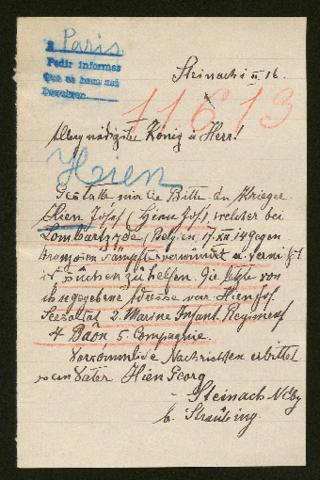 A Paris
Pedir informes
Que se han
Devolver
Steinach II. 16.
11613
Allergnädigster König u Herr!
Hien
Gestatte mir die Bitte den Krieger
Hien Josef (Hien Jos.) welcher bei
Lombartzyde (Belgien) 17. XII 14 gegen
Franzosen kämpfte verwundet u. vermißt
ist suchen zu helfen. Die letzte von
ihm gegebene Adresse war. Hien Jos.
Seesoldat 2. Marine Infant. Regiment
4 Baon 5. Compagnie.
Nachrichten erbittet
Vater Hien Georg
Steinach
b. Straubing.